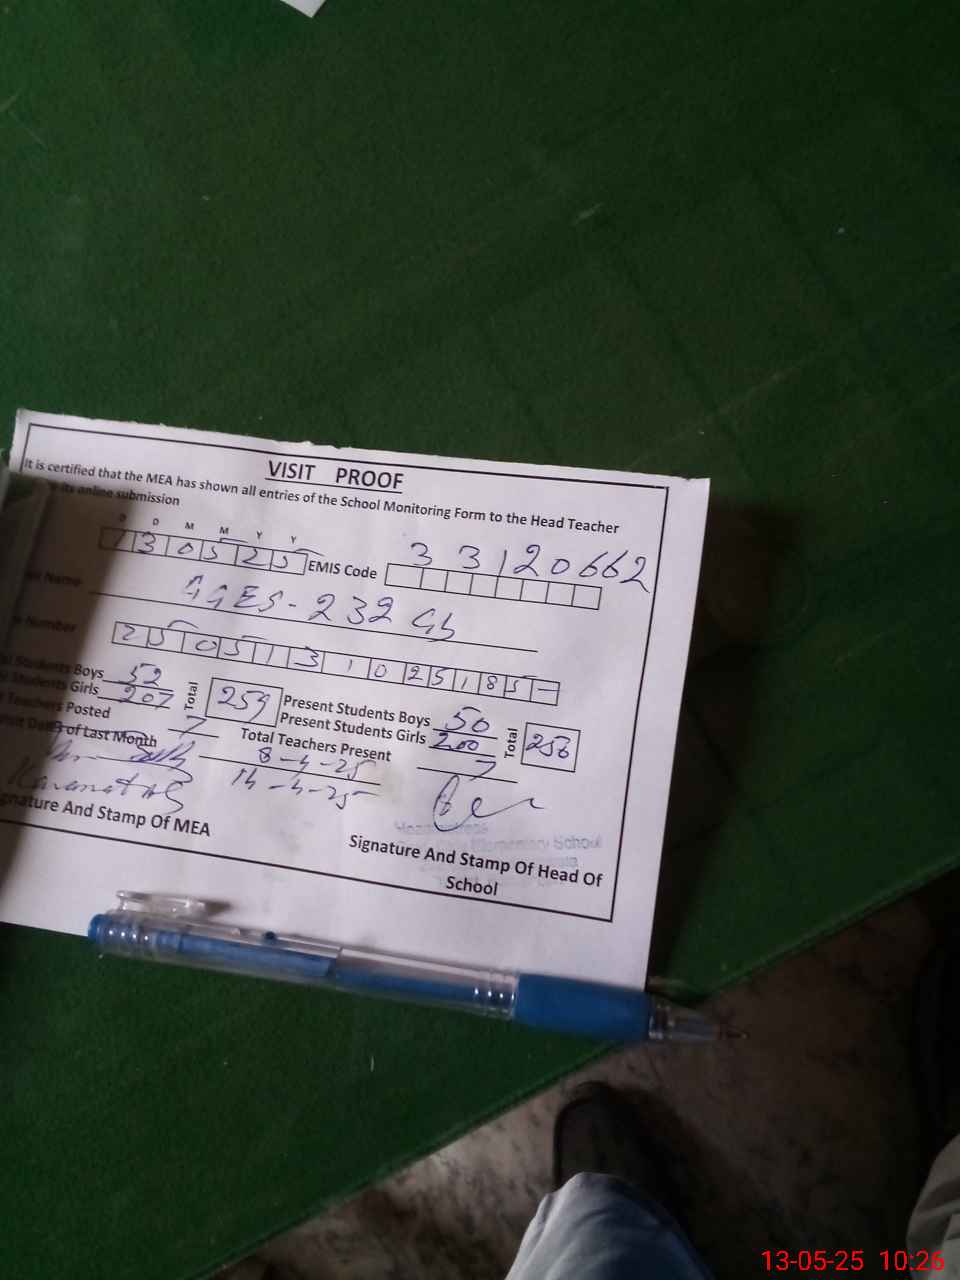 VISIT PROOF
It is certified that the MEA has shown all entries of the School Monitoring Form to the Head Teacher
its online submission
D D M M Y Y
130525 EMIS Code 33120662
Name GGES-232 GB
Number 2505131025185-
Students Boys 52
Students Girls 207 Total 259 Present Students Boys 50
Present Students Girls 200 Total 250
Teachers Posted 7 Total Teachers Present 7
Visit Date of Last Month 8-4-25
14-4-25
Signature And Stamp Of MEA
Elementary School
Signature And Stamp Of Head Of
School
13-05-25 10:26